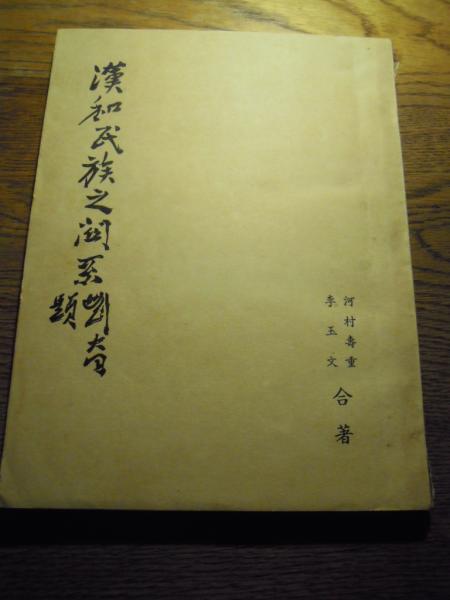 漢和民族之関系
題
河村壽重
李玉文
合著